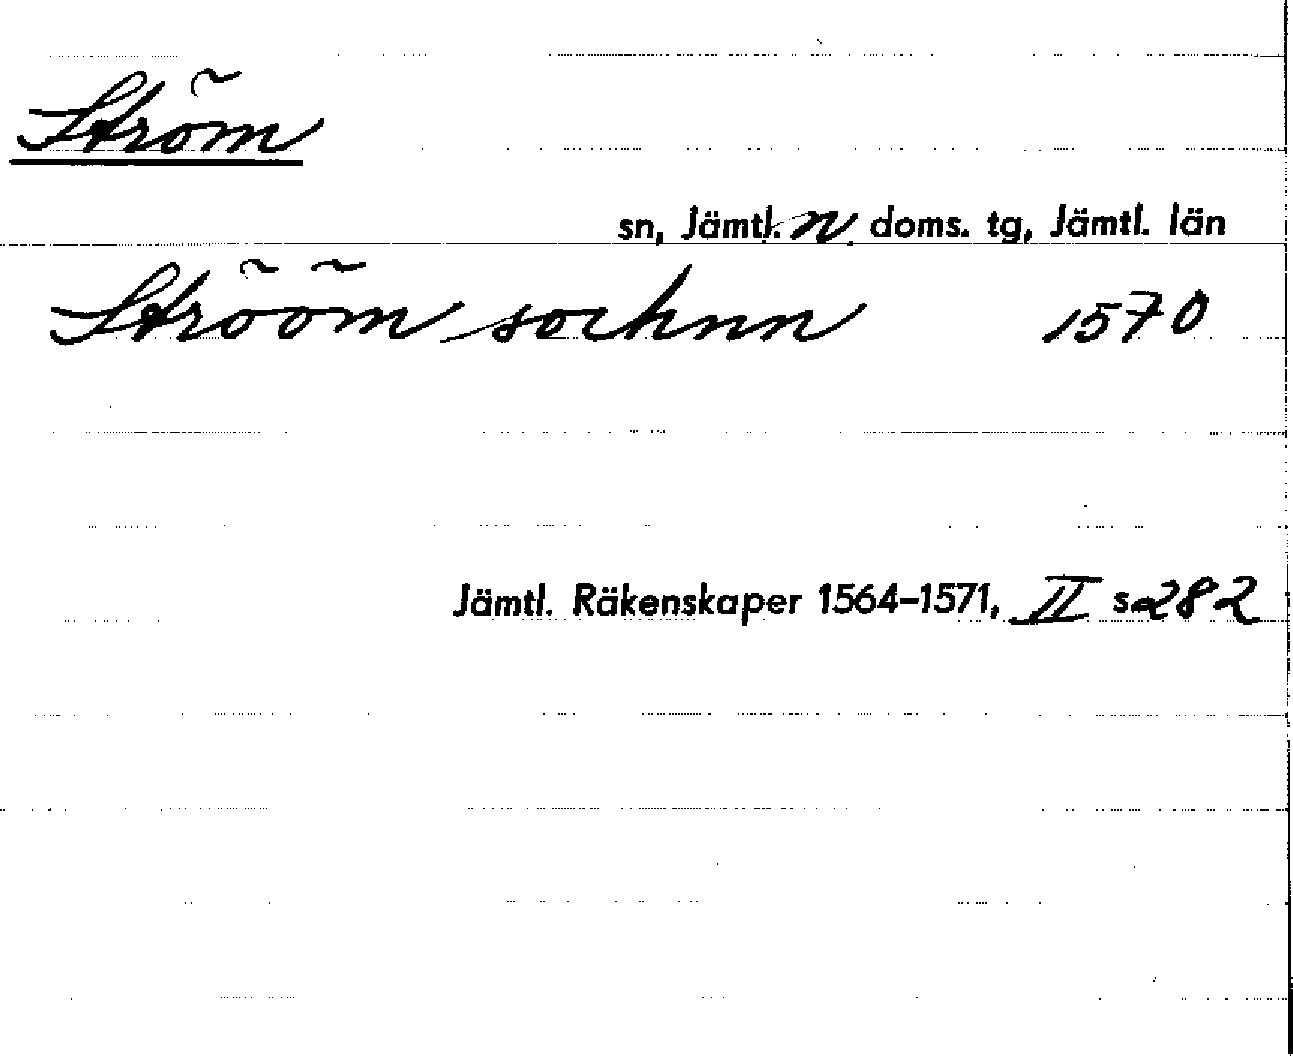 Ström
sn, Jämtl. n. doms. tg, Jämtl. län
Strööm sochnn 1570
Jämtl. Räkenskaper 1564-1571, II s 282